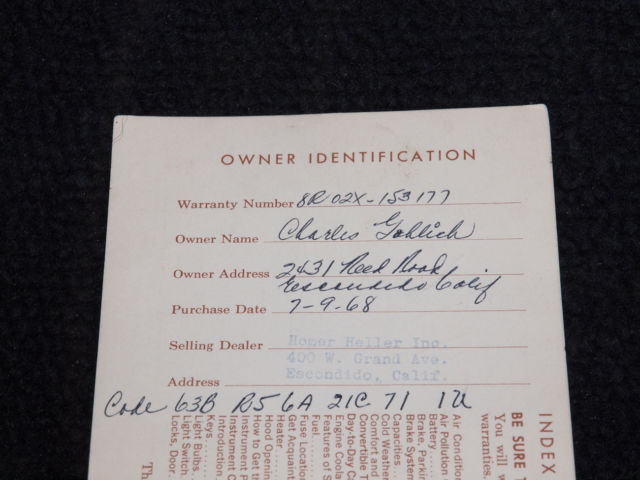 OWNER IDENTIFICATION
Warranty Number 8R02X-153177
Owner Name Charles Gohlich
Owner Address 2431 Reed Road
Escondido Calif
Purchase Date 7-9-68
Selling Dealer Homer Heller Inc.
400 W. Grand Ave.
Address Escondido, Calif.
Code 63B R5 6A 21C 71 1U
INDEX
BE SURE T
You will w
warranties.
Air Condition
Air Pollution
Battery
Brake, Parkin
Brake System
Capacities
Cold Weathe
Comfort and
Convertible T
Day-to-Day C
Engine Coola
Features of S
Fuel
Fuse Location
Get Acquaint
Heater
Hood Openin
How to Get th
Instrument P
Instrument C
Introduction
Keys
Light Bulbs
Light Switch
Locks, Door
Th